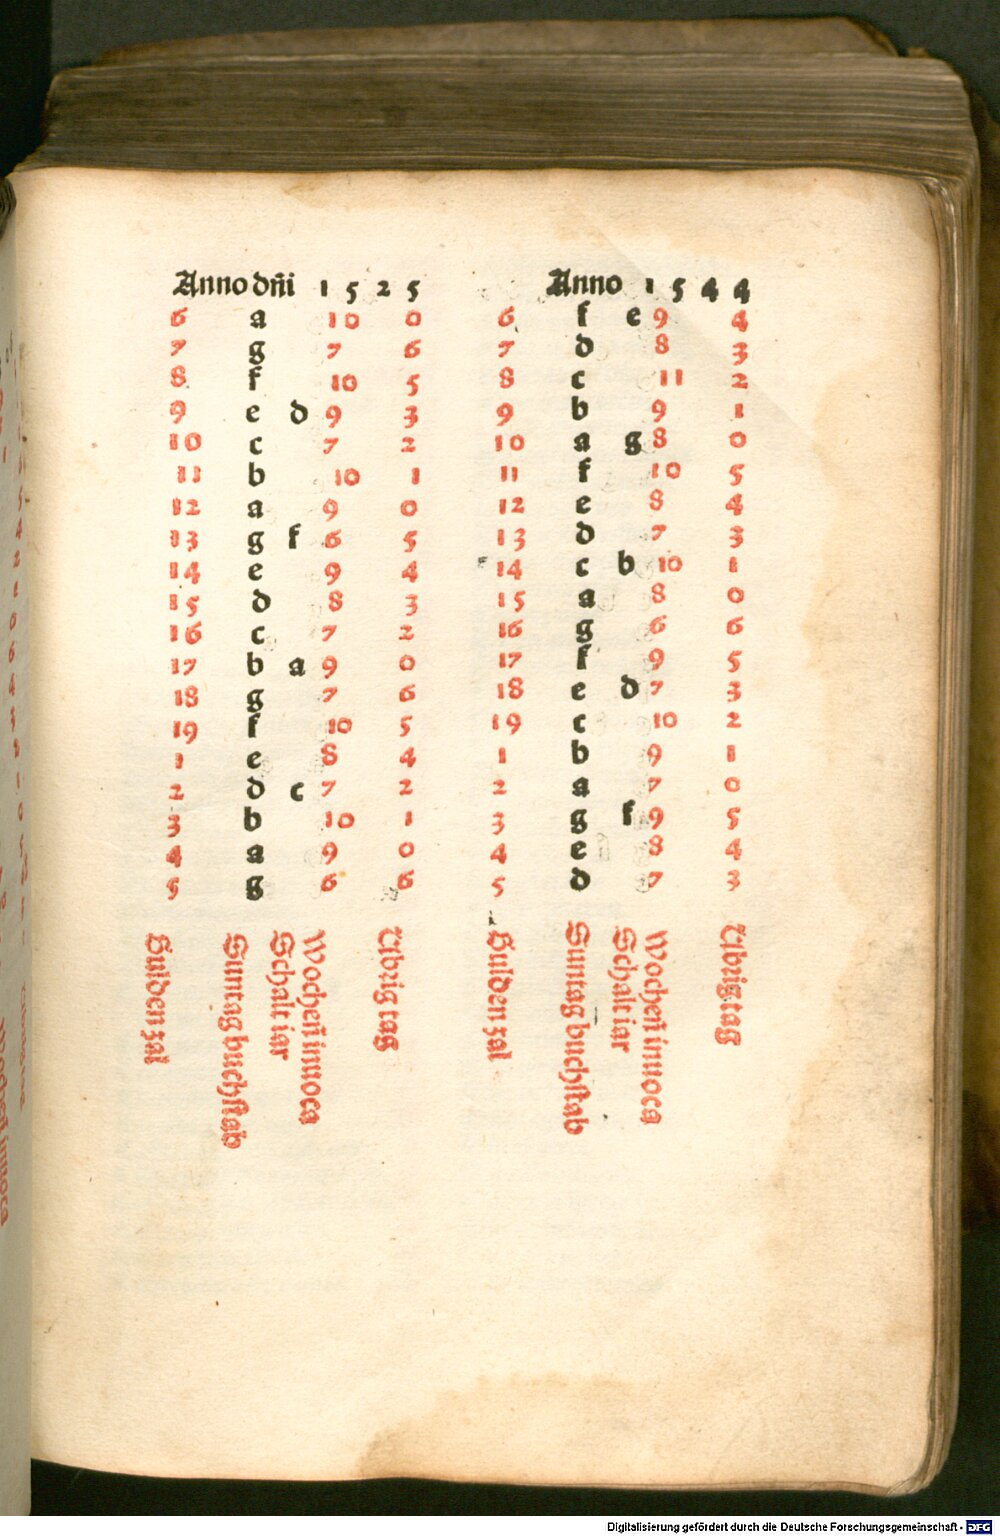 Anno dñi 1 5 2 5
6 a 10 0
7 g 7 6
8 f 10 5
9 e d 9 3
10 c 7 2
11 b 10 1
12 a 9 0
13 g f 6 5
14 e 9 4
15 d 8 3
16 c 7 2
17 b a 9 0
18 g 7 6
19 f 10 5
1 e 8 4
2 d c 7 2
3 b 10 1
4 a 9 0
5 g 6 6
Gulden zal
Suntag buchstab
Schalt iar
Wocheñ inuoca
Vbrig tag
Anno 1 5 4 4
6 f e 9 4
7 d 8 3
8 c 11 2
9 b 9 1
10 a g 8 0
11 f 10 5
12 e 8 4
13 d 7 3
14 c b 10 1
15 a 8 0
16 g 6 6
17 f 9 5
18 e d 7 3
19 c 10 2
1 b 9 1
2 a 7 0
3 g f 9 5
4 e 8 4
5 d 7 3
Gulden zal
Suntag buchstab
Schalt iar
Wocheñ inuoca
Vbrig tag
Digitalisierung gefördert durch die Deutsche Forschungsgemeinschaft - DFG